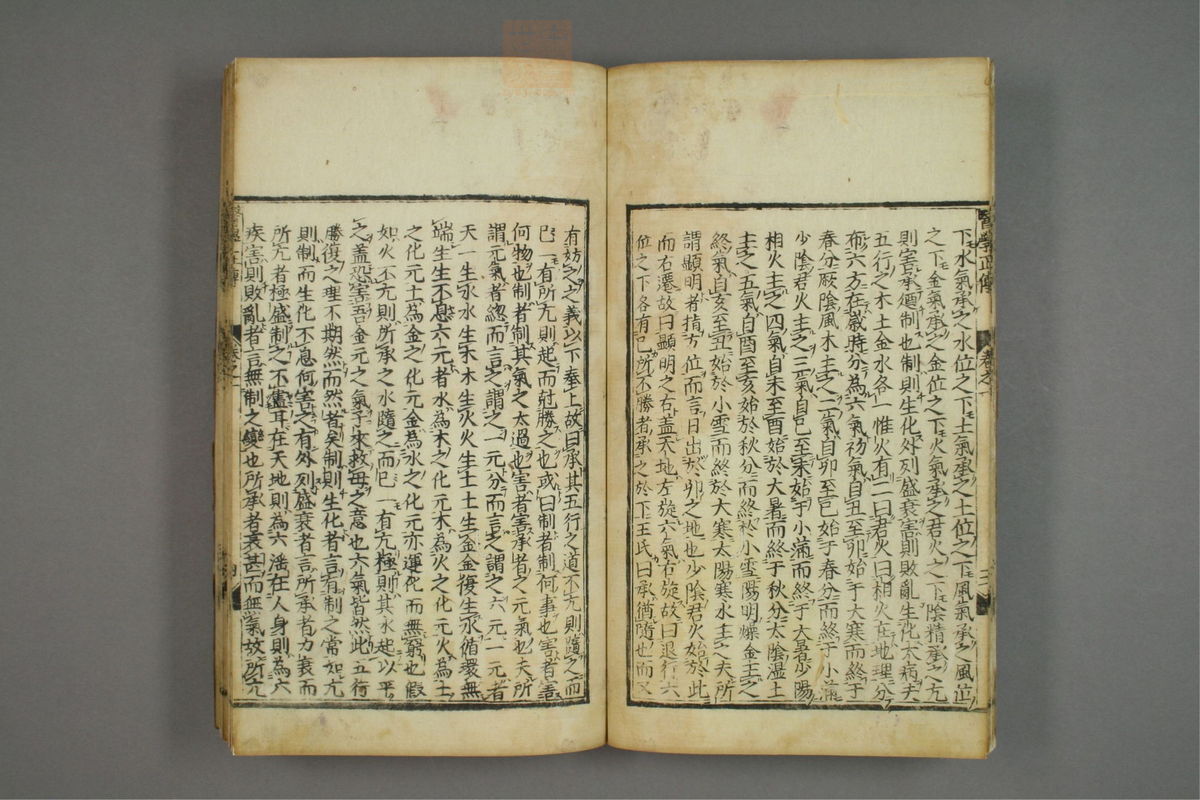 醫學正傳
卷之一
下水氣承之水位之下土氣承之土位之下風氣承之風位
之下金氣承之金位之下火氣承之君火之下陰精承之亢
則害承廼制也制則生化外列盛衰害則敗亂生化大病夫
五行之木土金水各一惟火有二曰君火曰相火在地理分
布六方在歲時分為六氣初氣自丑至卯始于大寒而終于
春分厥陰風木主之二氣自卯至巳始于春分而終于小滿
少陰君火主之三氣自巳至未始于小滿而終于大暑少陽
相火主之四氣自未至酉始於大暑而終于秋分太陰濕土
主之五氣自酉至亥始於秋分而終於小雪陽明燥金主之
終氣自亥至丑始於小雪而終於大寒太陽寒水主之夫所
謂顯明者指方位而言日出於卯之地也少陰君火始於此
而右遷故曰顯明之右盖天地左旋六氣右旋故曰退行六
位之下各有己所不勝者承之於下王氏曰承猶隨也而又
有妨之之義以下奉上故曰承其五行之道不亢則隨之而
巳一有所亢則起而尅勝之也或曰制者制何事也害者害
何物也制者制其氣之太過也害者害承者之元氣也夫所
謂元氣者總而言之謂之一元分而言之謂之六元一元者
天一生水水生木木生火火生土土生金金復生水循環無
端生生不息六元者水為木之化元木為火之化元火為土
之化元土為金之化元金為水之化元亦運化而無窮也假
如火不亢則所承之水隨之而巳一有亢極則其水起以平
之盖恐害吾金元之氣子來救母之意也六氣皆然此五行
勝復之理不期然而然者矣制則生化者言有制之常如亢
則制而生化不息何害之有外列盛衰者言所承者力衰而
所亢者極盛制之不盡耳在天地則為六淫在人身則為六
疾害則敗亂者言無制之變也所承者衰甚而無氣故所亢
四